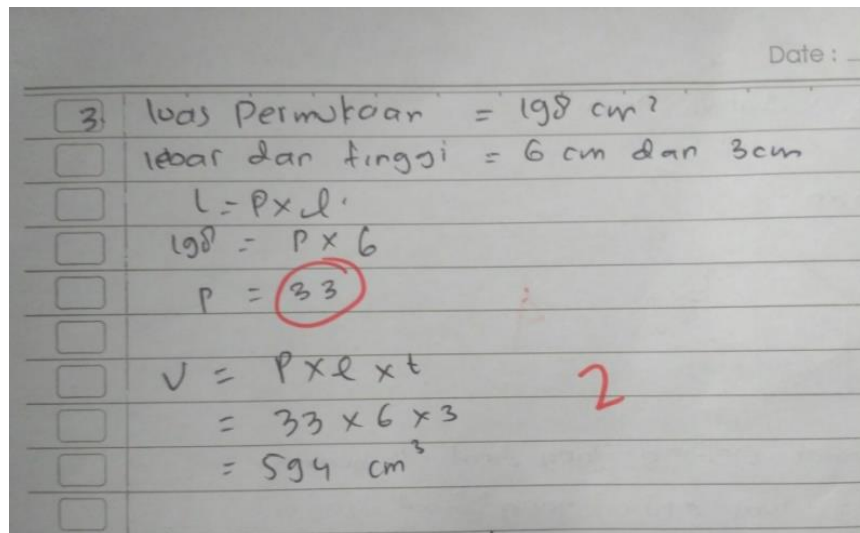 Date :
3. luas permukaan = 198 cm²
lebar dan tinggi = 6 cm dan 3cm
L = P x l.
198 = P x 6
P = 33
V = P x l x t
2
= 33 x 6 x 3
= 594 cm³